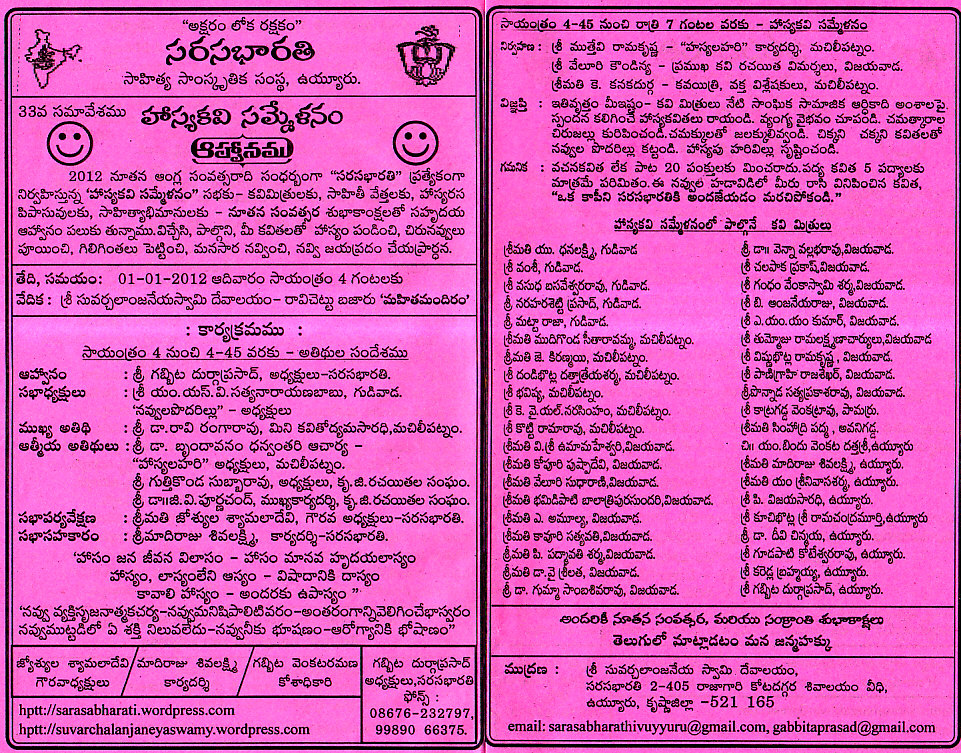 "అక్షరం లోక రక్షకం"
సరసభారతి
సాహిత్య సాంస్కృతిక సంస్థ, ఉయ్యూరు.
33వ సమావేశము
హాస్యకవి సమ్మేళనం
ఆహ్వానము
2012 నూతన ఆంగ్ల సంవత్సరాది సందర్భంగా "సరసభారతి" ప్రత్యేకంగా
నిర్వహిస్తున్న 'హాస్యకవి సమ్మేళనం' సభకు- కవిమిత్రులకు, సాహితీ వేత్తలకు, హాస్యరస
పిపాసువులకు, సాహిత్యాభిమానులకు - నూతన సంవత్సర శుభాకాంక్షలతో సహృదయ
ఆహ్వానం పలుకు తున్నాము.విచ్చేసి, పాల్గొని, మీ కవితలతో హాస్యం పండించి, చిరునవ్వులు
పూయించి, గిలిగింతలు పెట్టించి, మనసార నవ్వించి, నవ్వి జయప్రదం చేయప్రార్ధన.
తేది, సమయం: 01-01-2012 ఆదివారం సాయంత్రం 4 గంటలకు
వేదిక : శ్రీ సువర్చలాంజనేయస్వామి దేవాలయం- రావిచెట్టు బజారు 'మహితమందిరం'
: కార్యక్రమము :
సాయంత్రం 4 నుంచి 4-45 వరకు - అతిథుల సందేశము
ఆహ్వానం : శ్రీ గబ్బిట దుర్గాప్రసాద్, అధ్యక్షులు-సరసభారతి.
సభాధ్యక్షులు : శ్రీ యం.యస్.వి.సత్యనారాయణబాబు, గుడివాడ.
'నవ్వులపొదరిల్లు' - అధ్యక్షులు
ముఖ్య అతిథి : శ్రీ డా.రావి రంగారావు, మిని కవితోద్యమసారధి,మచిలీపట్నం.
ఆత్మీయ అతిథులు: శ్రీ డా. బృందావనం ధన్వంతరి ఆచార్య -
"హాస్యలహరి" అధ్యక్షులు, మచిలీపట్నం.
శ్రీ గుత్తికొండ సుబ్బారావు, అధ్యక్షులు, కృ.జి.రచయితల సంఘం.
శ్రీ డా॥జి.వి.పూర్ణచంద్, ముఖ్యకార్యదర్శి, కృ.జి.రచయితల సంఘం.
సభాపర్యవేక్షణ : శ్రీమతి జోశ్యుల శ్యామలాదేవి, గౌరవ అధ్యక్షులు-సరసభారతి.
సభాసహకారం : శ్రీమాదిరాజు శివలక్ష్మి, కార్యదర్శి-సరసభారతి.
'హాసం జన జీవన విలాసం - హాసం మానవ హృదయలాస్యం
హాస్యం, లాస్యంలేని ఆస్యం - విషాదానికి దాస్యం
కావాలి హాస్యం - అందరకు ఉపాస్యం "
'నవ్వు వ్యక్తిసృజనాత్మకచర్య-నవ్వుమనిషిపాలిటివరం-అంతరంగాన్నివెలిగించేభాస్వరం
నవ్వుముట్టడిలో ఏ శక్తి నిలువలేదు-నవ్వునీకు భూషణం-ఆరోగ్యానికి భోషాణం"
జ్యోశ్యుల శ్యామలాదేవి
గౌరవాధ్యక్షులు
మాదిరాజు శివలక్ష్మి
కార్యదర్శి
గబ్బిట వెంకటరమణ
కోశాధికారి
గబ్బిట దుర్గాప్రసాద్
అధ్యక్షులు,సరసభారతి
ఫోన్స్ :
08676-232797,
99890 66375.
hptt://sarasabharati.wordpress.com
hptt://suvarchalanjaneyaswamy.wordpress.com
సాయంత్రం 4-45 నుంచి రాత్రి 7 గంటల వరకు - హాస్యకవి సమ్మేళనం
నిర్వహణ : శ్రీ ముత్తేవి రామకృష్ణ - "హస్యలహరి" కార్యదర్శి, మచిలీపట్నం.
శ్రీ వేలూరి కౌండిన్య - ప్రముఖ కవి రచయిత విమర్శలు, విజయవాడ.
శ్రీమతి కె. కనకదుర్గ - కవయిత్రి, వక్త విశ్లేషకులు, మచిలీపట్నం.
విజ్ఞప్తి : ఇతివృత్తం మీఇష్టం- కవి మిత్రులు నేటి సాంఘిక సామాజిక ఆర్థికాది అంశాలపై.
స్పందన కలిగించే హాస్యకవితలు రాయండి. వ్యంగ్య వైభవం చూపండి. చమత్కారాల
చిరుజల్లు కురిపించండి.చమక్కులతో జలక్కులివ్వండి. చిక్కని చక్కని కవితలతో
నవ్వుల పొదరిల్లు కట్టండి. హాస్యపు హరివిల్లు సృష్టించండి.
గమనిక : వచనకవిత లేక పాట 20 పంక్తులకు మించరాదు.పద్య కవిత 5 పద్యాలకు
మాత్రమే పరిమితం.ఈ నవ్వుల హడావిడిలో మీరు రాసి వినిపించిన కవిత,
"ఒక కాపీని సరసభారతికి అందజేయడం మరచిపోకండి."
హాస్యకవి సమ్మేళనంలో పాల్గొనే కవి మిత్రులు
శ్రీమతి యు. ధనలక్ష్మి, గుడివాడ
శ్రీ వంశీ, గుడివాడ.
శ్రీ వసుధ బసవేశ్వరరావు, గుడివాడ.
శ్రీ నరహరశెట్టి ప్రసాద్, గుడివాడ.
శ్రీ మట్టా రాజా, గుడివాడ.
శ్రీమతి ముదిగొండ సీతారావమ్మ, మచిలీపట్నం.
శ్రీమతి జె. కిరణ్మయి, మచిలీపట్నం.
శ్రీ దండిభొట్ల దత్తాత్రేయశర్మ, మచిలీపట్నం.
శ్రీ భవిష్య, మచిలీపట్నం.
శ్రీ కె. వై.యల్.నరసింహం, మచిలీపట్నం.
శ్రీ కొట్టి రామారావు, మచిలీపట్నం.
శ్రీమతి వి.శ్రీ ఉమామహేశ్వరి,విజయవాడ.
శ్రీమతి కోపూరి పుష్పాదేవి, విజయవాడ.
శ్రీమతి వేలూరి సుధారాణి,విజయవాడ.
శ్రీమతి భమిడిపాటి బాలాత్రిపురసుందరి,విజయవాడ.
శ్రీమతి ఎ. అమూల్య, విజయవాడ.
శ్రీమతి కావూరి సత్యవతి,విజయవాడ.
శ్రీమతి పి. పద్మావతి శర్మ,విజయవాడ.
శ్రీమతి డా.వై శ్రీలత, విజయవాడ.
శ్రీ డా. గుమ్మా సాంబశివరావు, విజయవాడ.
శ్రీ డా॥ వెన్నా వల్లభరావు,విజయవాడ.
శ్రీ చలపాక ప్రకాష్,విజయవాడ.
శ్రీ గంధం వేంకాస్వామి శర్మ,విజయవాడ.
శ్రీ బి. ఆంజనేయరాజు, విజయవాడ.
శ్రీ ఎ.యం.యం కుమార్, విజయవాడ.
శ్రీ తుమ్మోజు రామలక్ష్మణాచార్యులు,విజయవాడ
శ్రీ విష్ణుభొట్ల రామకృష్ణ , విజయవాడ.
శ్రీ పాణిగ్రాహి రాజశేఖర్, విజయవాడ.
శ్రీపొన్నాడ సత్యప్రకాశరావు, విజయవాడ.
శ్రీ కాట్రగడ్డ వెంకట్రావు, పామర్రు.
శ్రీమతి సింహాద్రి పద్మ , అవనిగడ్డ.
చి॥ యం.బిందు వెంకట దత్తశ్రీ,ఉయ్యూరు
శ్రీమతి మాదిరాజు శివలక్ష్మి, ఉయ్యూరు.
శ్రీమతి యం శ్రీనివాసశర్మ, ఉయ్యూరు.
శ్రీ పి. విజయసారధి, ఉయ్యూరు.
శ్రీ కూచిభొట్ల శ్రీ రామచంద్రమూర్తి,ఉయ్యూరు
శ్రీ డా. దీవి చిన్మయ, ఉయ్యూరు.
శ్రీ గూడపాటి కోటేశ్వరరావు, ఉయ్యూరు.
శ్రీ కరెడ్ల బ్రహ్మయ్య, ఉయ్యూరు.
శ్రీ గబ్బిట దుర్గాప్రసాద్, ఉయ్యూరు.
అందరికీ నూతన సంవత్సర, మరియు సంక్రాంతి శుభాకాంక్షలు
తెలుగులో మాట్లాడటం మన జన్మహక్కు
ముద్రణ : శ్రీ సువర్చలాంజనేయ స్వామి దేవాలయం,
సరసభారతి 2-405 రాజాగారి కోటదగ్గర శివాలయం వీధి,
ఉయ్యూరు, కృష్ణాజిల్లా -521 165
email: sarasabharathivuyyuru@gmail.com, gabbitaprasad@gmail.com